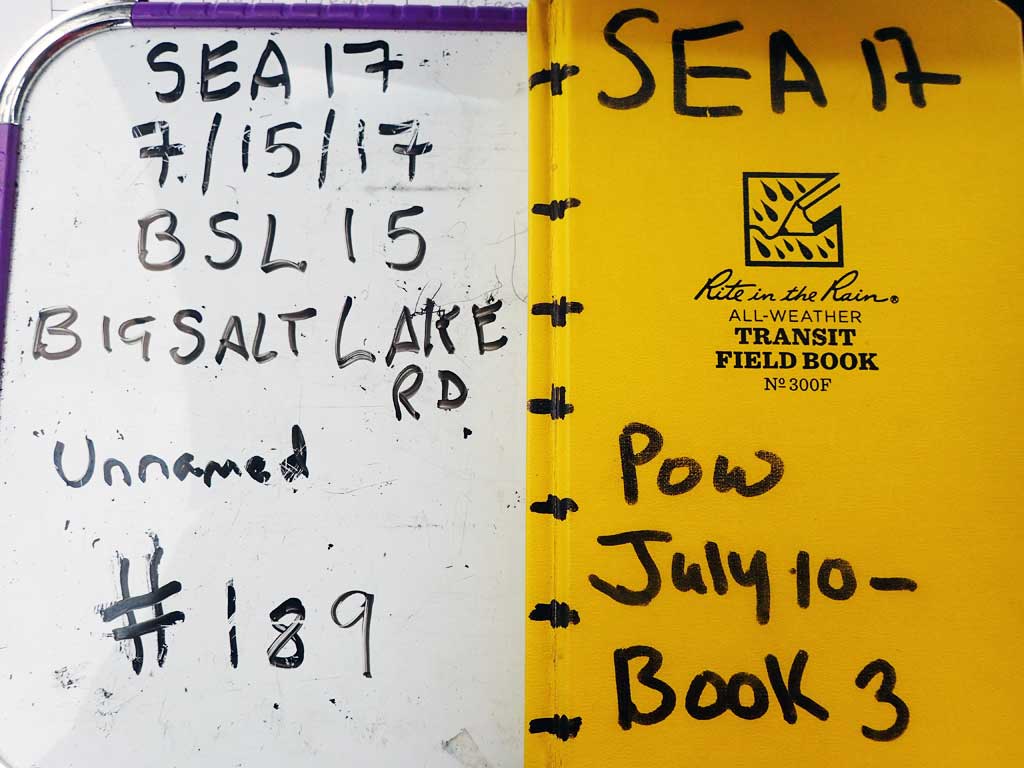 SEA 17
7/15/17
BSL 15
BIG SALT LAKE
RD
Unnamed
#189
SEA 17
Rite in the Rain®
ALL-WEATHER
TRANSIT
FIELD BOOK
Nº 300F
POW
July 10-
BOOK 3